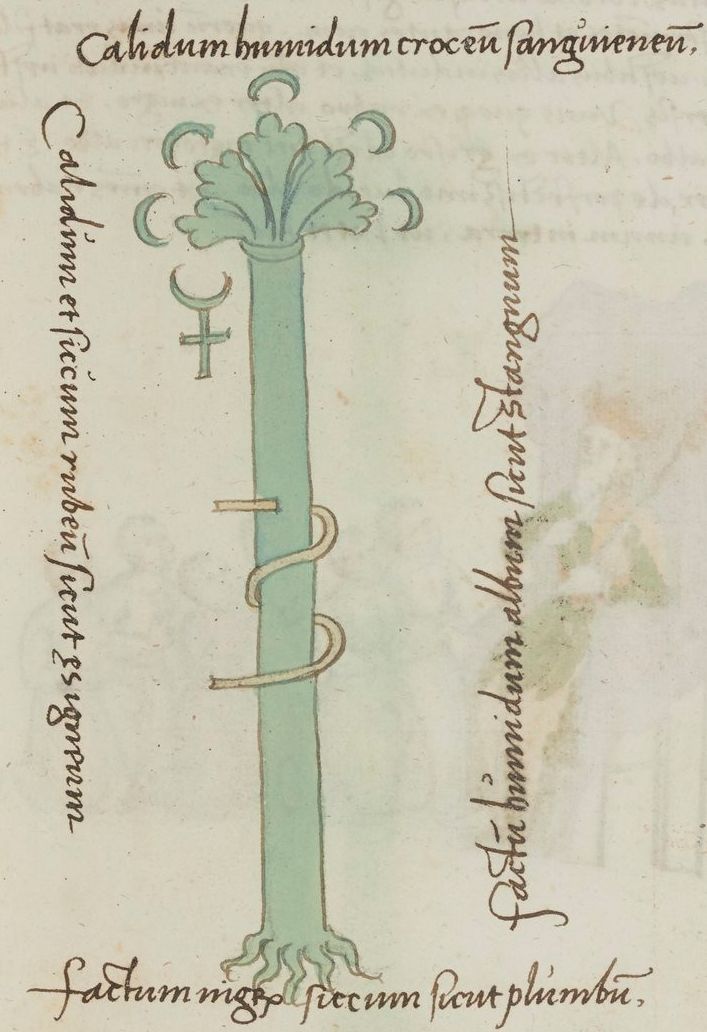 Calidum humidum croceū sanguieneū.
Calidum et siccum rubeū sicut
factū humidum album sicut stangnum
factum nigrꝝ siccum sicut plumbū.